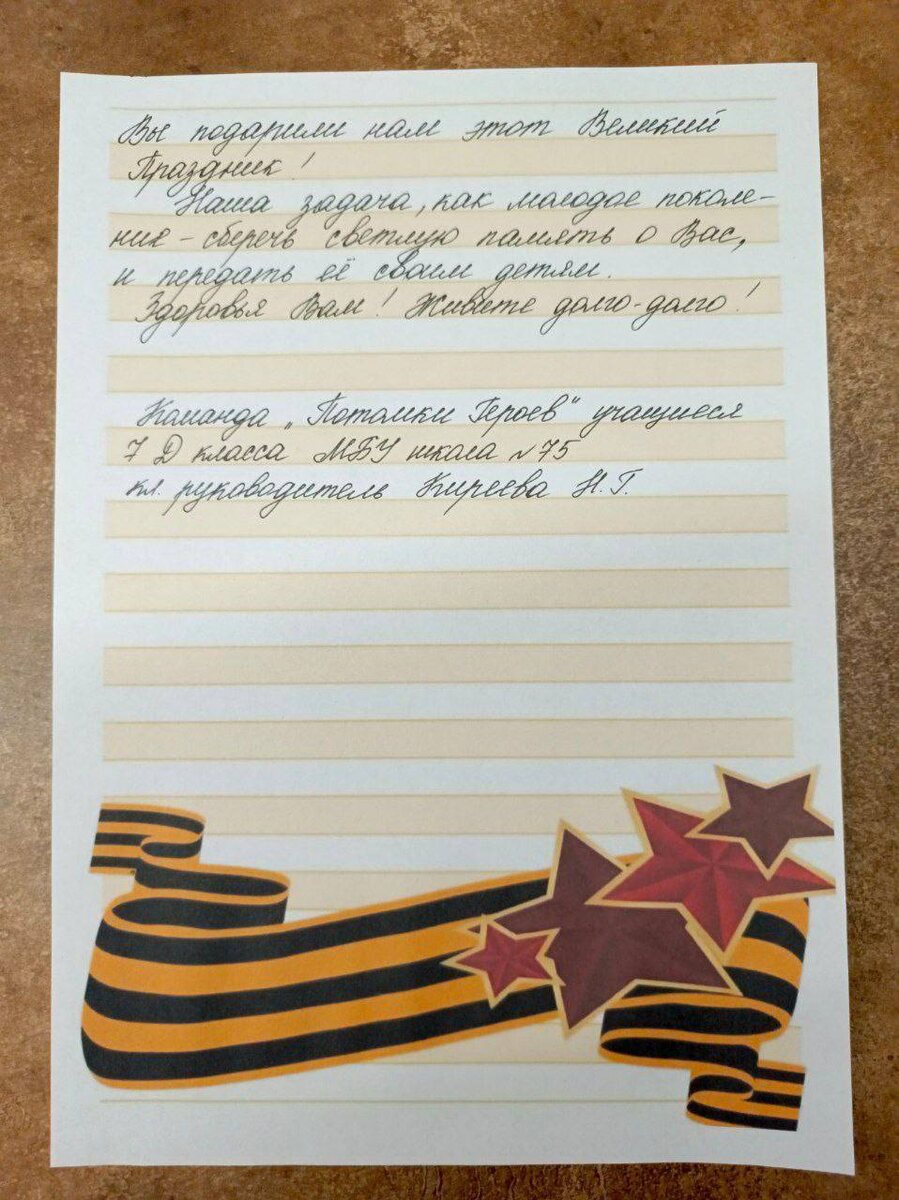 Вы подарили нам этот Великий
Праздник!
Наша задача, как молодое поколе-
ние - сберечь светлую память о Вас,
и передать её своим детям.
Здоровья Вам! Живите долго-долго!
Команда „Потомки Героев" учащиеся
7 Д класса МБУ школа №75
кл. руководитель Киреева Н.Г.